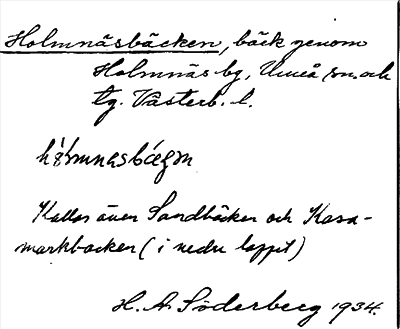 Holmnäsbäcken, bäck genom
Holmnäs by, Umeå sn. och
tg. Västerb. l.
Kallas även Sandbäcken och Kasa-
markbacken (i nedre loppet)
H. A. Söderberg 1934.